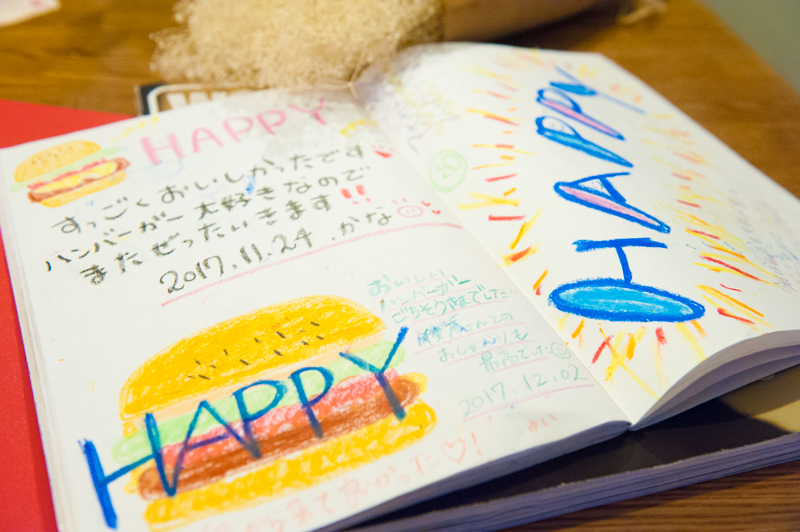 HAPPY
すっごくおいしかったです
ハンバーガー大好きなので!!
またぜったいきます
2017.11.24.かな
おいしい
ハンバーガー
ごちそう様でした!
さんとの
おしゃべりも
最高でした
2017.12.02
HAPPY
来て良かった♡!
HAPPY